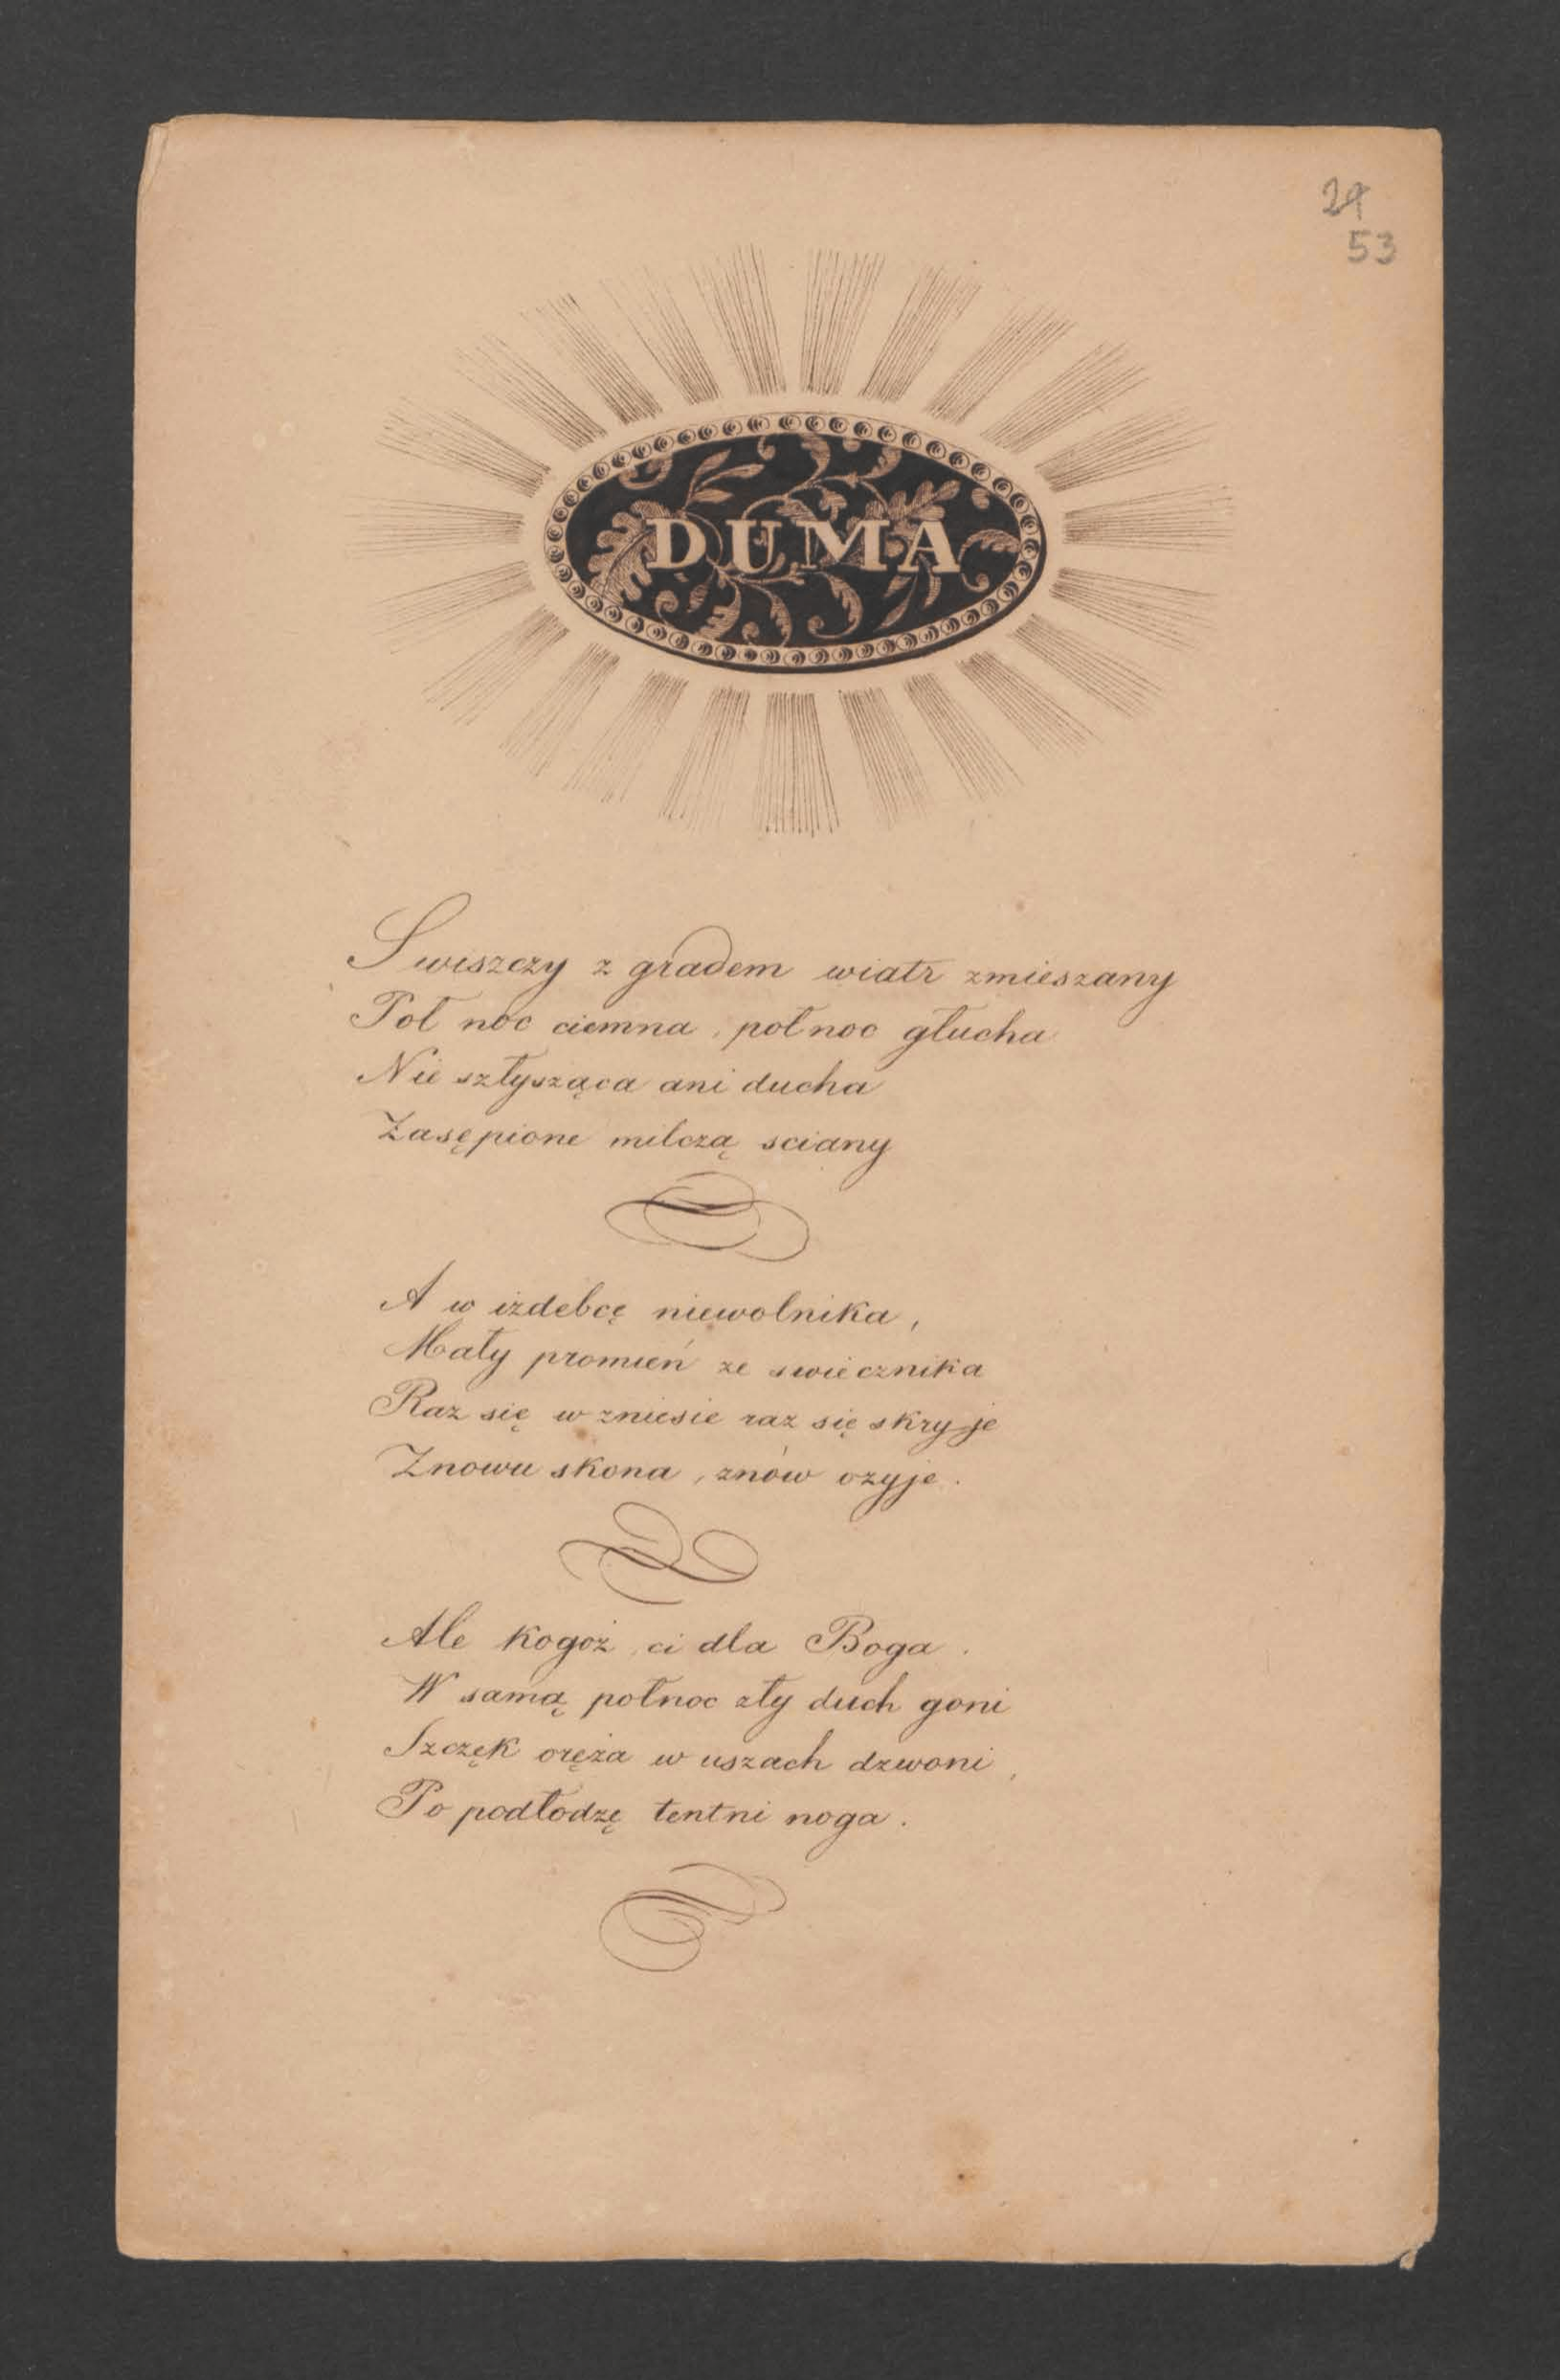 29
53
DUMA
Swiszczy z gradem wiatr zmieszany
Poł noc ciemna, połnoc głucha
Nie szłysząca ani ducha
Zasępione milczą sciany
A w izdebcę niewolnika,
Mały promień ze swiecznika
Raz się w zniesie raz się skryje
Znowu skona, znów ozyje.
Ale kogoż ci dla Boga.
W samą połnoc zły duch goni
Szczęk oręża w uszach dzwoni,
Po podłodzę tentni noga.